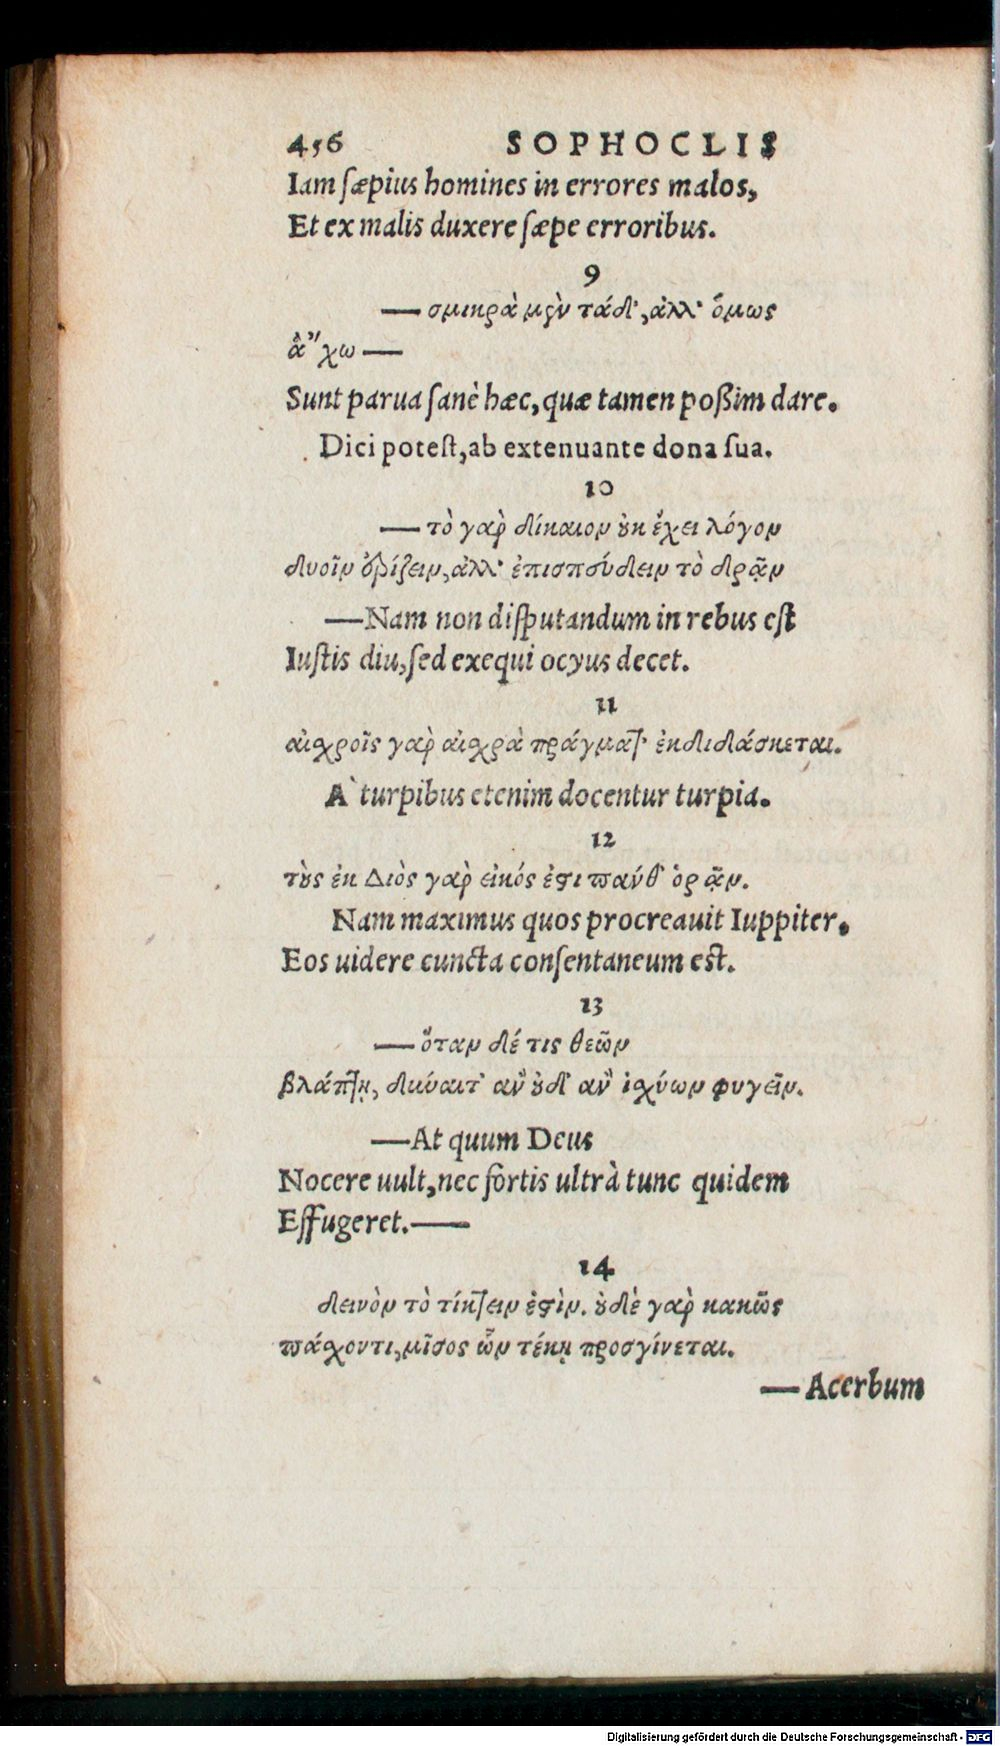 456 SOPHOCLIS
Iam sæpius homines in errores malos,
Et ex malis duxere sæpe erroribus.
9
— σμικρὰ μὲν τάδ', ἀλλ' ὅμως
ἃ 'χω —
Sunt parua sanè hæc, quæ tamen poßim dare.
Dici potest, ab extenuante dona sua.
10
— τὸ γὰρ δίκαιον οὐκ ἔχει λόγον
δυοῖν ἐρίζειν, ἀλλ' ἐπισπεύδειν τὸ δρᾷν
—Nam non disputandum in rebus est
Iustis diu, sed exequi ocyus decet.
11
αἰσχροῖς γὰρ αἰσχρὰ πράγματ' ἐκδιδάσκεται.
A' turpibus etenim docentur turpia.
12
τοὺς ἐκ Διὸς γὰρ εἰκός ἐστι πάνθ' ὁρᾷν.
Nam maximus quos procreauit Iuppiter.
Eos uidere cuncta consentaneum est.
13
— ὅταν δέ τις θεῶν
βλάπτῃ, δύναιτ' ἂν οὐδ' ἂν ἰσχύων φυγεῖν.
—At quum Deus
Nocere uult, nec fortis ultrà tunc quidem
Effugeret.—
14
δεινὸν τὸ τίκτειν ἐστὶν. οὐδὲ γὰρ κακῶς
πάσχοντι, μῖσος ὧν τέκῃ προσγίνεται.
— Acerbum
Digitalisierung gefördert durch die Deutsche Forschungsgemeinschaft - DFG